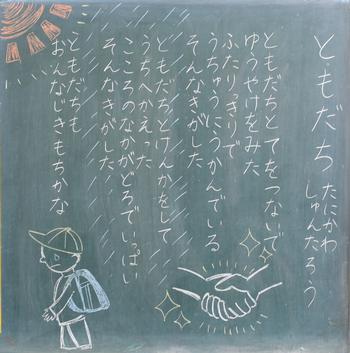 ともだち
たにかわ
しゅんたろう
ともだちとてをつないで
ゆうやけをみた
ふたりっきりで
うちゅうにうかんでいる
そんなきがした
ともだちとけんかをして
うちへかえった
こころのなかがどろでいっぱい
そんなきがした
ともだちも
おんなじきもちかな